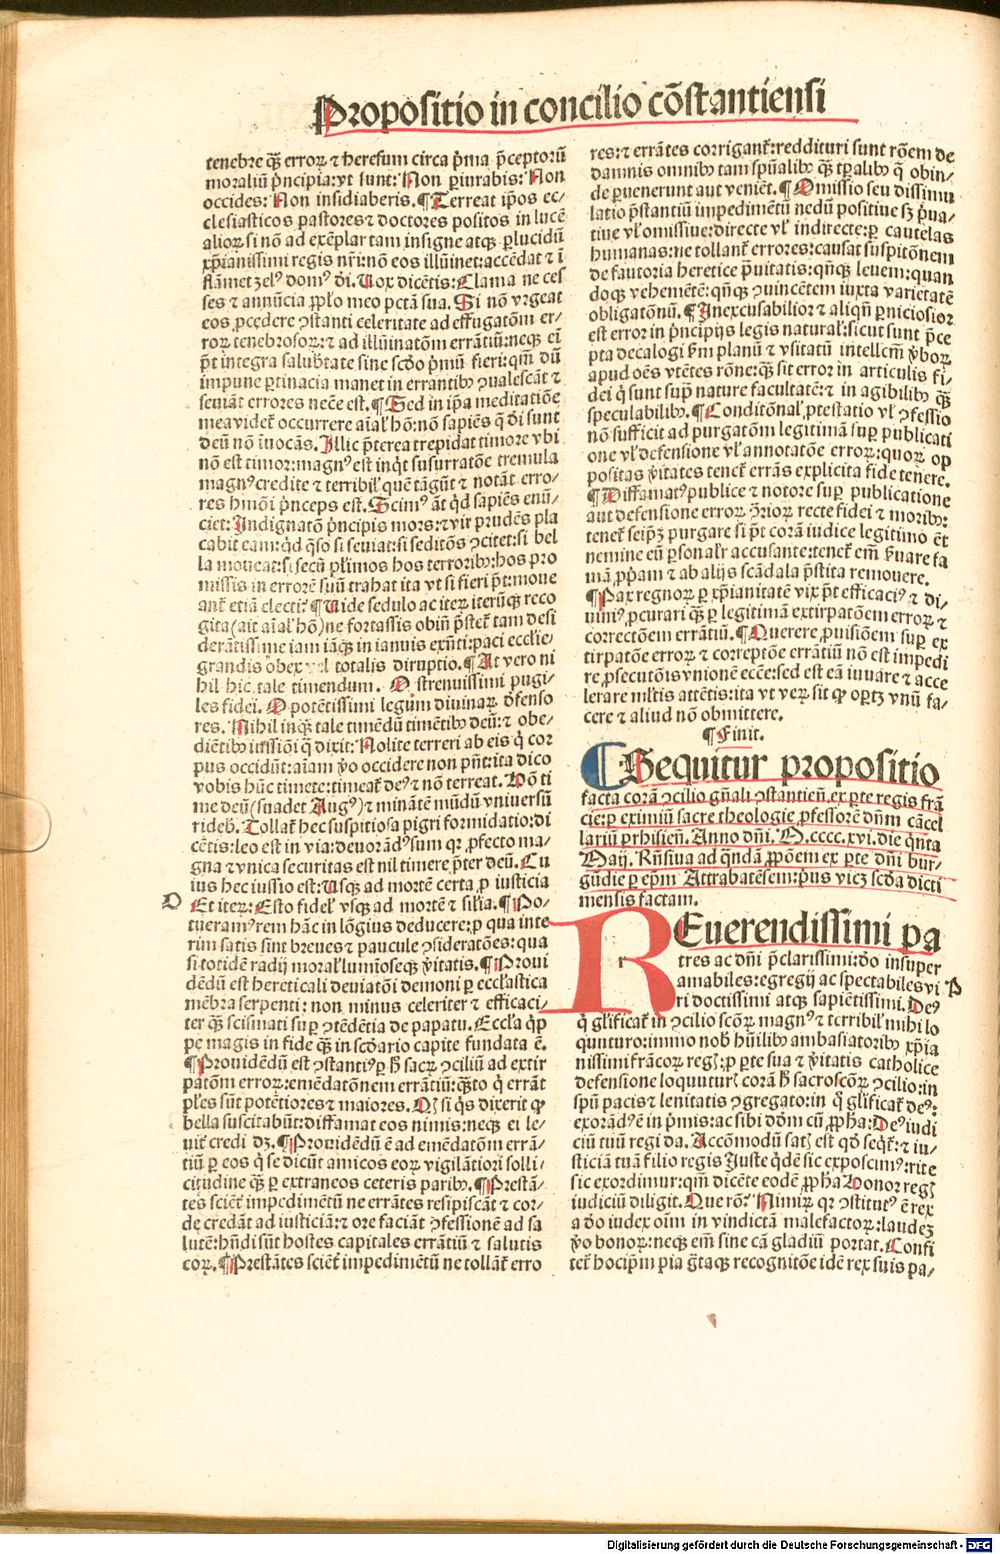 Propositio in concilio cõstantiensi
tenebre q̃ȝ erroꝝ ⁊ heresum circa p̃ma p̃ceptorũ
moraliũ p̃ncipia: vt sunt: Non ꝑiurabis: Non
occides: Non insidiaberis. ¶ Terreat ip̃os ec⸗
clesiasticos pastores ⁊ doctores positos in lucẽ
alioꝝ si nõ ad exẽplar tam insigne atqȝ ꝑlucidũ
xp̃ianissimi regis nr̃i: nõ eos illũinet: accẽdat ⁊ ĩ
flãmet ȝelꝰ domꝰ d̃i. Vox dicẽtis: Clama ne ces
ses ⁊ annũcia ꝓplo meo pctã sua. Si nõ vrgeat
eos ꝓcedere ꝯstanti celeritate ad effugatõm er⸗
roꝝ tenebrosoꝝ: ⁊ ad illũinatõm errãtiũ: neqȝ ei
p̃t integra salubritate sine scd̃o p̃mũ fieri: qm̃ dũ
impune ꝑtinacia manet in errantibꝰ ꝯualescãt ⁊
seuiãt errores necẽ est. ¶ Sed in ip̃a meditatiõe
mea videt̃ occurrere aĩal̃ hõ: nõ sapiẽs q̃ d̃i sunt
deũ nõ ĩuocãs. Illic p̃terea trepidat timore vbi
nõ est timor: magnꝰ est inq̃t susurratõe tremula
magnꝰ credite ⁊ terribil̃ quẽ tãgũt ⁊ notãt erro⸗
res hmõi p̃nceps est. Scimꝰ ãt q̃d sapiẽs enũ⸗
ciet: Indignatõ p̃ncipis mors: ⁊ vir prudẽs pla
cabit eam: q̃d q̃so si seuiat: si seditõs ꝯcitet: si bel
la moueat: si secũ pl̃imos hos terroribꝰ: hos pro
missis in errorẽ suũ trahat ita vt si fieri p̃t: moue
ant̃ etiã electi? ¶ Vide sedulo ac iteꝝ iterũqȝ reco
gita (ait aĩal̃ hõ) ne fortassis obiñ p̃stet̃ tam desi
deratissime iam iãqȝ in ianuis exñti: paci eccl̃ie
grandis obex vel totalis diruptio. ¶ At vero ni
hil hic tale timendum. O strenuissimi pugi⸗
les fidei. O potẽtissimi legum diuinaꝝ d̃fenso
res. Nihil inqȝ tale timẽdũ timẽtibꝰ deũ: ⁊ obe⸗
diẽtibꝰ iussiõi q̃ dixit: Nolite terreri ab eis q̃ cor
pus occidũt: aĩam ṽo occidere non pñt: ita dico
vobis hũc timete: timeat̃ deꝰ ⁊ nõ terreat. Nõ ti
me deũ (suadet Augꝰ) ⁊ minãtẽ mũdũ vniuersũ
rideb̃. Tollat̃ hec suspitiosa pigri formidatio: di
cẽtis: leo est in via: deuorãdꝰ sum qꝛ ꝓfecto ma⸗
gna ⁊ vnica securitas est nil timere p̃ter deũ. Cu
ius hec iussio est: Vsqȝ ad mortẽ certa ꝓ iusticia
D Et iteꝝ: Esto fidel̃ vsqȝ ad mortẽ ⁊ sil̃ia. ¶ Po⸗
tueramꝰ rem hãc in lõgius deducere: ꝓ qua inte
rim satis sint breues ⁊ paucule ꝯsideratões: qua
si totidẽ radij moral̃ lumĩoseqȝ ṽitatis. ¶ Proui
dẽdũ est hereticali deuiatõi demoni ꝑ eccl̃astica
mẽbra serpenti: non minus celeriter ⁊ efficaci⸗
ter q̃ȝ scismati suꝑ ꝯtẽdẽtia de papatu. Eccl̃a q̃ꝑ
pe magis in fide q̃ȝ in scd̃ario capite fundata ẽ.
¶ Prouidẽdũ est ꝯstantiꝰ ꝑ h̃ sacꝝ ꝯciliũ ad extir
patõm erroꝝ: emẽdatõnem errãtiũ: q̃sto q̃ errãt
pl̃es sũt potẽtiores ⁊ maiores. Qȝ si q̃s dixerit qꝙ
bella suscitabũt: diffamat eos nimis: neqȝ ei le⸗
uit̃ credi dȝ. ¶ Prouidẽdũ ẽ ad emẽdatõm errã⸗
tiũ ꝑ eos q̃ se dicũt amicos eoꝝ vigilãtiori solli⸗
citudine q̃ȝ ꝑ extraneos ceteris paribꝰ. ¶ Prestã⸗
tes sciẽt̃ impedimẽtũ ne errãtes resipiscãt ⁊ cor⸗
de credãt ad iusticiã: ⁊ ore faciãt ꝯfessionẽ ad sa
lutẽ: hñdi sũt hostes capitales errãtiũ ⁊ salutis
eoꝝ. ¶ Prestãtes sciẽt̃ impedimẽtũ ne tollãt̃ erro
res: ⁊ errãtes corrigant̃: reddituri sunt rõem de
damnis omnibꝰ tam spũalibꝰ q̃ȝ tꝑalibꝰ q̃ obin⸗
de ꝑuenerunt aut veniẽt. ¶ Omissio seu dissimu
latio p̃stantiũ impedimẽtũ nedũ positiue sȝ p̃ua⸗
tiue vl̃ omissiue: directe vl̃ indirecte: ꝑ cautelas
humanas: ne tollant̃ errores: causat suspitõnem
de fautoria heretice p̃uitatis: qñqȝ leuem: quan
doqȝ vehemẽtẽ: qñqȝ ꝯuincẽtem iuxta varietatẽ
obligatõnũ. ¶ Inexcusabilior ⁊ aliqñ ꝑniciosior
est error in p̃ncipijs legis natural̃: sicut sunt p̃ce
pta decalogi ẽm planũ ⁊ vsitatũ intellcm̃ ṽboꝝ
apud oẽs vtẽtes rõne: q̃ȝ sit error in articulis fi⸗
dei q̃ sunt sup̃ nature facultatẽ: ⁊ in agibilibꝰ q̃ȝ
speculabilibꝰ. ¶ Conditõnal̃ ꝓtestatio vl̃ ꝯfessio
nõ sufficit ad purgatõm legitimã suꝑ publicati
one vl̃ defensione vl̃ annotatõe erroꝝ: quoꝝ op
positas ṽitates tenet̃ errãs explicita fide tenere.
¶ Diffamatꝰ publice ⁊ notorie suꝑ publicatione
aut defensione erroꝝ ꝯ̃rioꝝ recte fidei ⁊ moribꝰ:
tenet̃ seip̃ȝ purgare si p̃t corã iudice legitimo ẽt
nemine eũ ꝑsonalr̃ accusante: tenet̃ em̃ ẽuare fa
mã ꝓp̃am ⁊ ab alijs scãdala p̃stita remouere.
¶ Pax regnoꝝ ꝑ xp̃ianitatẽ vix p̃t efficaciꝰ ⁊ di⸗
uiniꝰ ꝓcurari q̃ȝ ꝑ legitimã extirpatõem erroꝝ ⁊
correctõem errãtiũ. ¶ Querere ꝓuisiõem suꝑ ex
tirpatõe erroꝝ ⁊ correptõe errãtiũ nõ est impedi
re ꝓsecutõis vnionẽ eccẽ: sed est eã iuuare ⁊ acce
lerare ml̃tis attẽtis: ita vt veꝝ sit qꝙ oportȝ vnũ fa⸗
cere ⁊ aliud nõ obmittere.
¶ Finit.
Sequitur propositio
facta corã ꝯcilio gñali ꝯstantieñ. ex ꝑte regis frã
cie: ꝑ eximiũ sacre theologie ꝓfessorẽ dñm cãcel
lariũ prhisieñ. Anno dñi. M.cccc.xvi. die q̃nta
Maij. Rñsiua ad q̃ndã ꝓp̃õem ex ꝑte dñi bur⸗
gũdie ꝑ ep̃m Attrabatẽsem: p̃us vicȝ scd̃a dicti
mensis factam.
REuerendissimi pa
tres ac dñi p̃clarissimi: d̃o insuper
amabiles: egregij ac spectabiles vi
ri doctissimi atqȝ sapiẽtissimi. Deꝰ
P
q̃ gl̃ificat̃ in ꝯcilio scõꝝ magnꝰ ⁊ terribil̃ mihi lo
quituro: immo nob̃ hũilibꝰ ambasiatoribꝰ xp̃ia
nissimi frãcoꝝ regȝ: ꝓ ꝑte sua ⁊ ṽitatis catholice
defensione loquuturȝ corã h̃ sacroscõꝝ ꝯcilio: in
spũ pacis ⁊ lenitatis ꝯgregato: in q̃ gl̃ificat̃ deꝰ:
exorãdꝰ ẽ in p̃mis: ac sibi dõm cũ ꝓp̃ha: Deꝰ iudi
ciũ tuũ regi da. Accõmodũ satȝ est qd̃ seq̃t̃: ⁊ iu⸗
sticiã tuã filio regis Juste q̃dẽ sic exposcimꝰ: rite
sic exordimur: qm̃ dicẽte eodẽ ꝓp̃ha Honor regȝ
iudiciũ diligit. Que rõ? Nimiꝝ qꝛ ꝯstitutꝰ ẽ rex
a d̃o iudex oĩm in vindictã malefactoꝝ: laudeȝ
ṽo bonoꝝ: neqȝ em̃ sine cã gladiũ portat. Confi
tet̃ hocip̃m pia g̃taqȝ recognitõe idẽ rex suis pa⸗
Digitalisierung gefördert durch die Deutsche Forschungsgemeinschaft - DFG